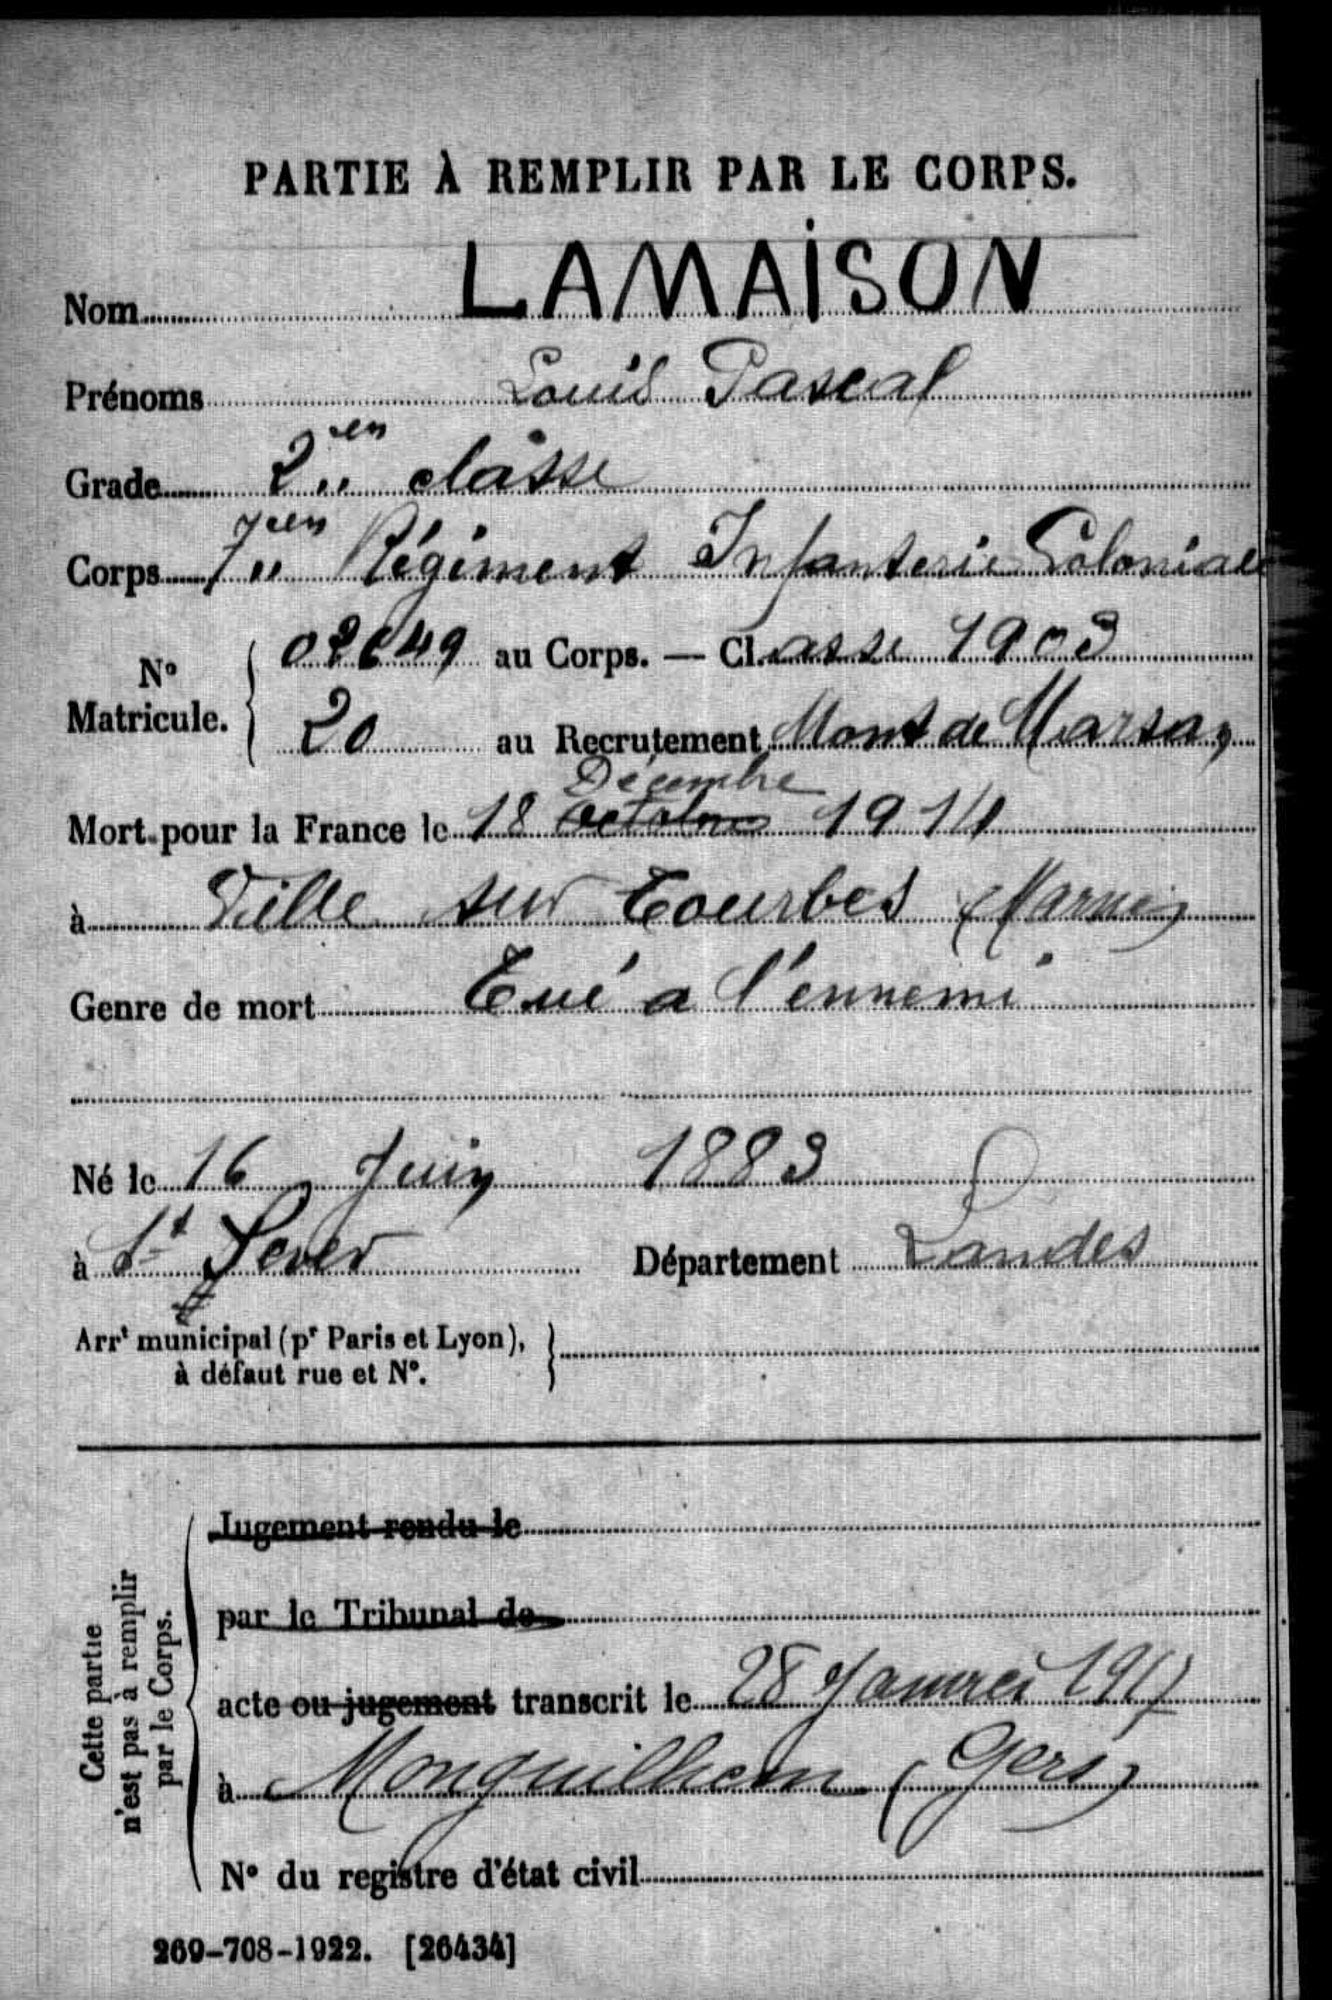 PARTIE À REMPLIR PAR LE CORPS.
Nom LAMAISON
Prénoms Louis Pascal
Grade 2en classe
Corps 7en Régiment Infanterie Coloniale
No Matricule. { 02649 au Corps. — Cl.asse 1903
20 au Recrutement Mont de Marsan
Décembre
Mort pour la France le 18 octobre 1914
à Ville sur Tourbes (Marne)
Genre de mort Tué a l'ennemi
Né le 16 Juin 1883
à St Sever Département Landes
Arrt municipal (pr Paris et Lyon),
à défaut rue et No.
Cette partie
n'est pas à remplir
par le Corps.
Jugement rendu le
par le Tribunal de
acte ou jugement transcrit le 28 Janvier 1917
à Monguilhem (Gers)
No du registre d'état civil
269-708-1922. [26434]